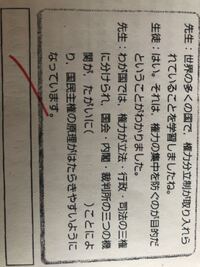 先生：世界の多くの国で、権力分立制が取り入れら
れていることを学習しましたね。
生徒：はい。それは、権力の集中を防ぐのが目的だ
ということがわかりました。
先生：わが国では、権力が立法・行政・司法の三権
に分けられ、国会・内閣・裁判所の三つの機
関が、たがいに（　　　　）ことによ
り、国民主権の原理がはたらきやすいように
なっています。